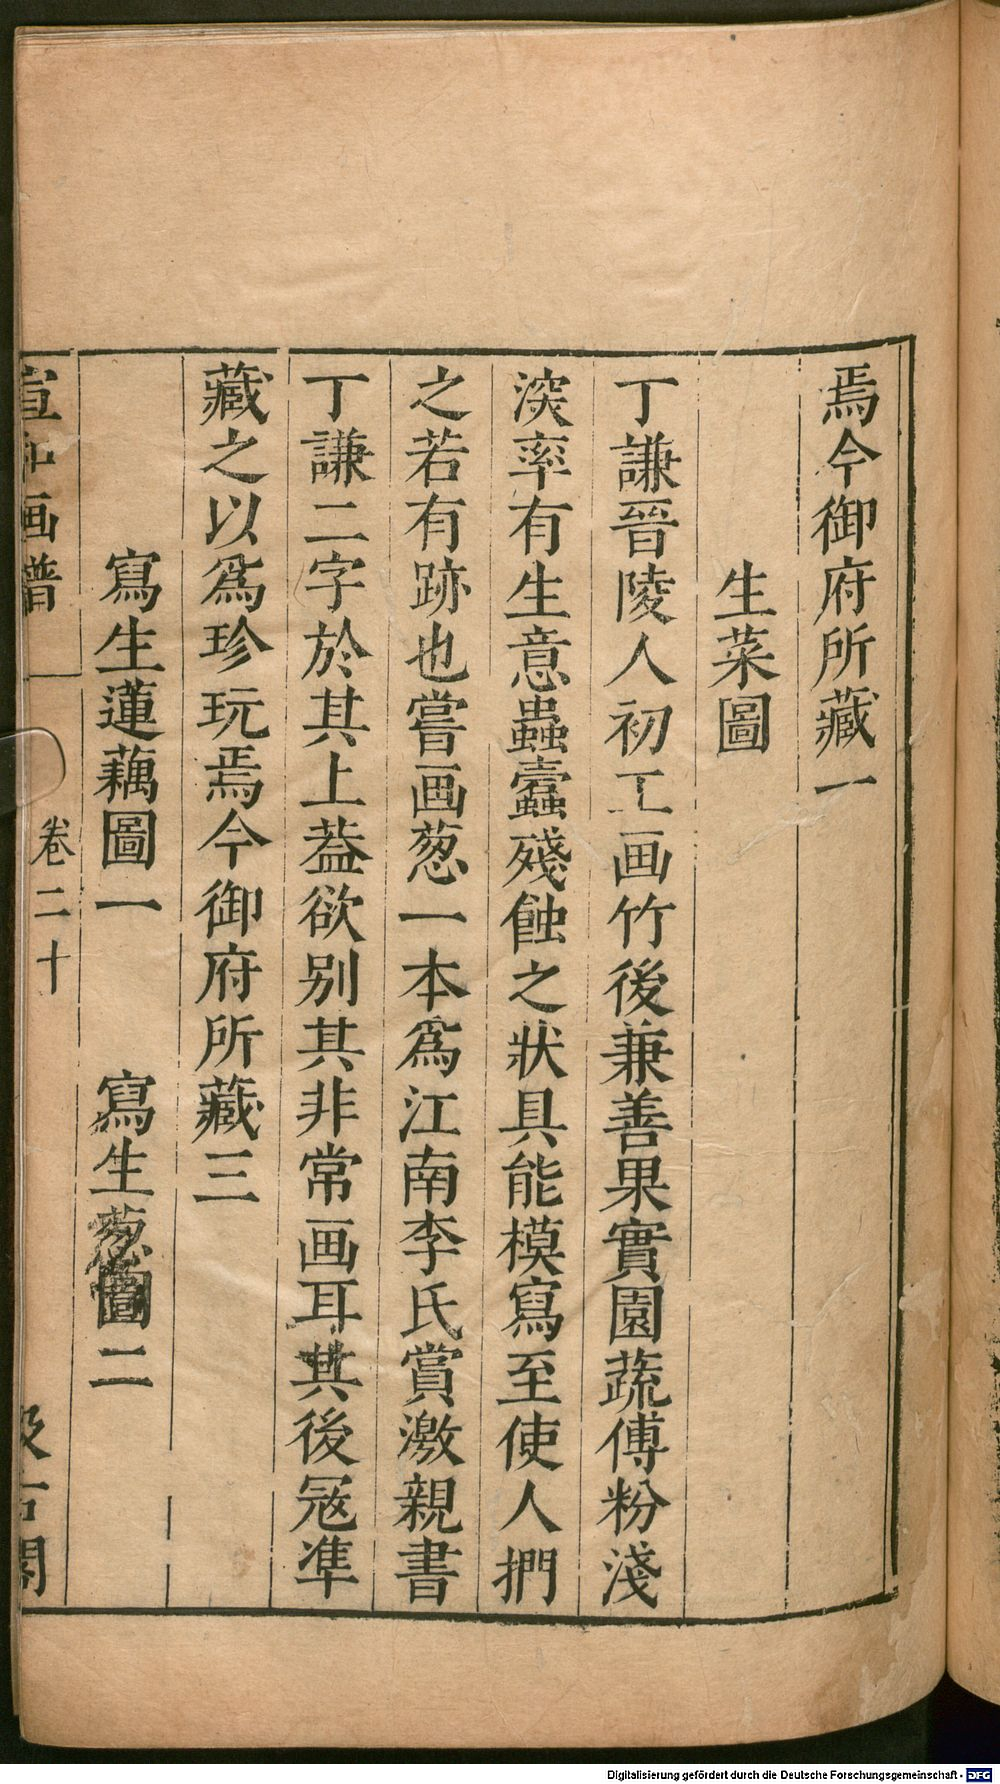 焉今御府所藏一
生菜圖
丁謙晉陵人初工画竹後兼善果實園蔬傅粉淺
深率有生意蟲蠹殘蝕之狀具能模寫至使人捫
之若有跡也嘗画葱一本爲江南李氏賞激親書
丁謙二字於其上葢欲别其非常画耳其後冦準
藏之以爲珍玩焉今御府所藏三
寫生蓮藕圖一 寫生葱圖二
宣和画譜 卷二十 汲古閣
Digitalisierung gefördert durch die Deutsche Forschungsgemeinschaft - DFG